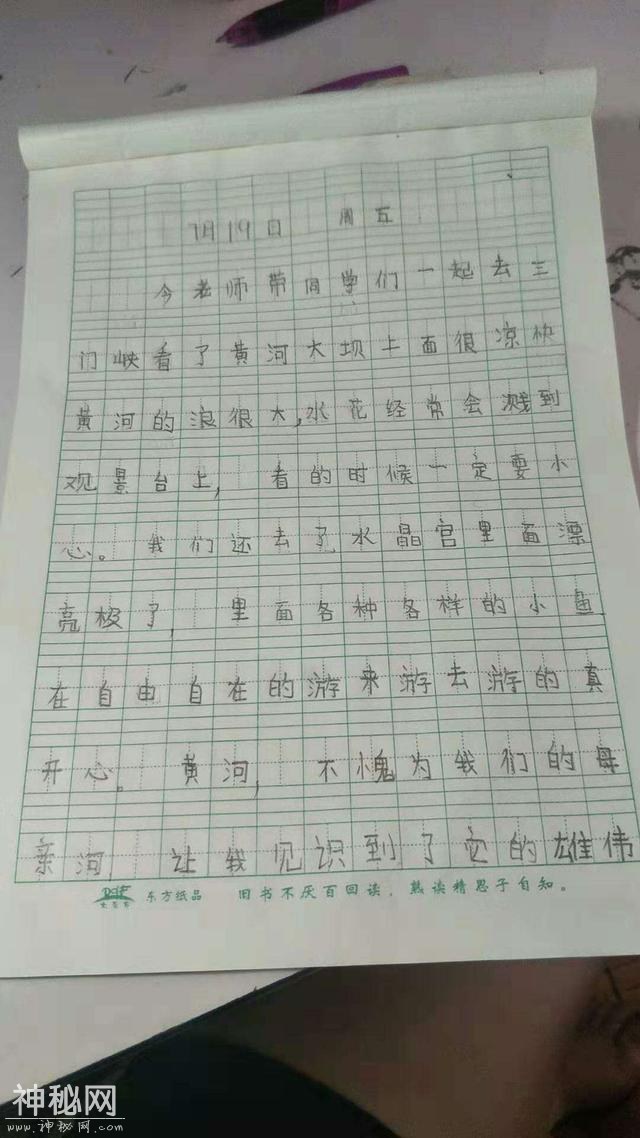 7月19日 周五
今老师带同学们一起去三
门峡看了黄河大坝上面很凉快
黄河的浪很大,水花经常会溅到
观景台上, 看的时候一定要小
心。 我们还去了水晶宫里面漂
亮极了, 里面各种各样的小鱼
在自由自在的游来游去游的真
开心。 黄河, 不愧为我们的母
亲河 让我见识到了它的雄伟
东方纸品 旧书不厌百回读，熟读精思子自知。
神秘网
www.神秘网.com